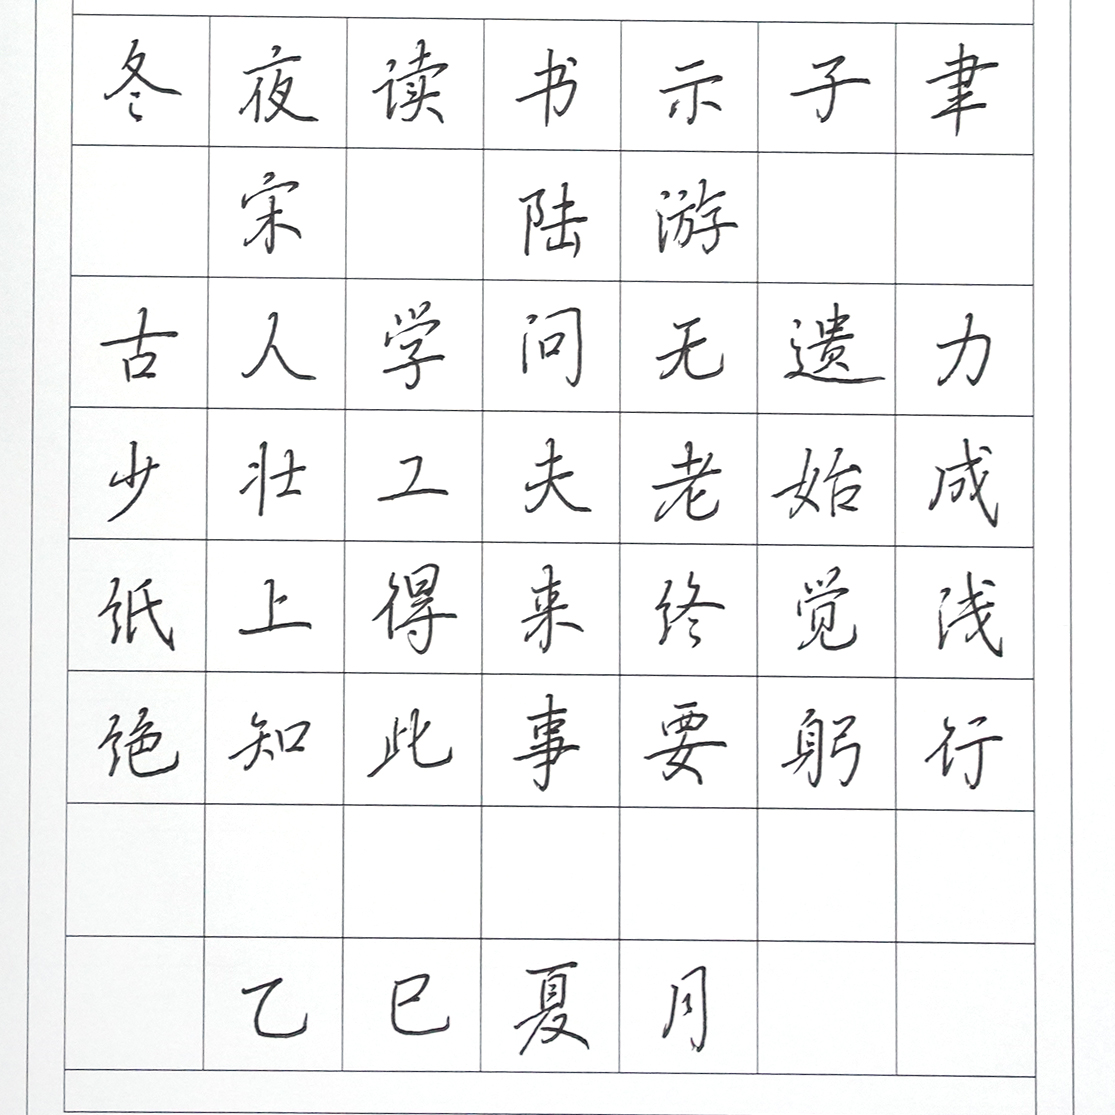 冬夜读书示子聿
宋 陆游
古人学问无遗力
少壮工夫老始成
纸上得来终觉浅
绝知此事要躬行
乙巳夏月